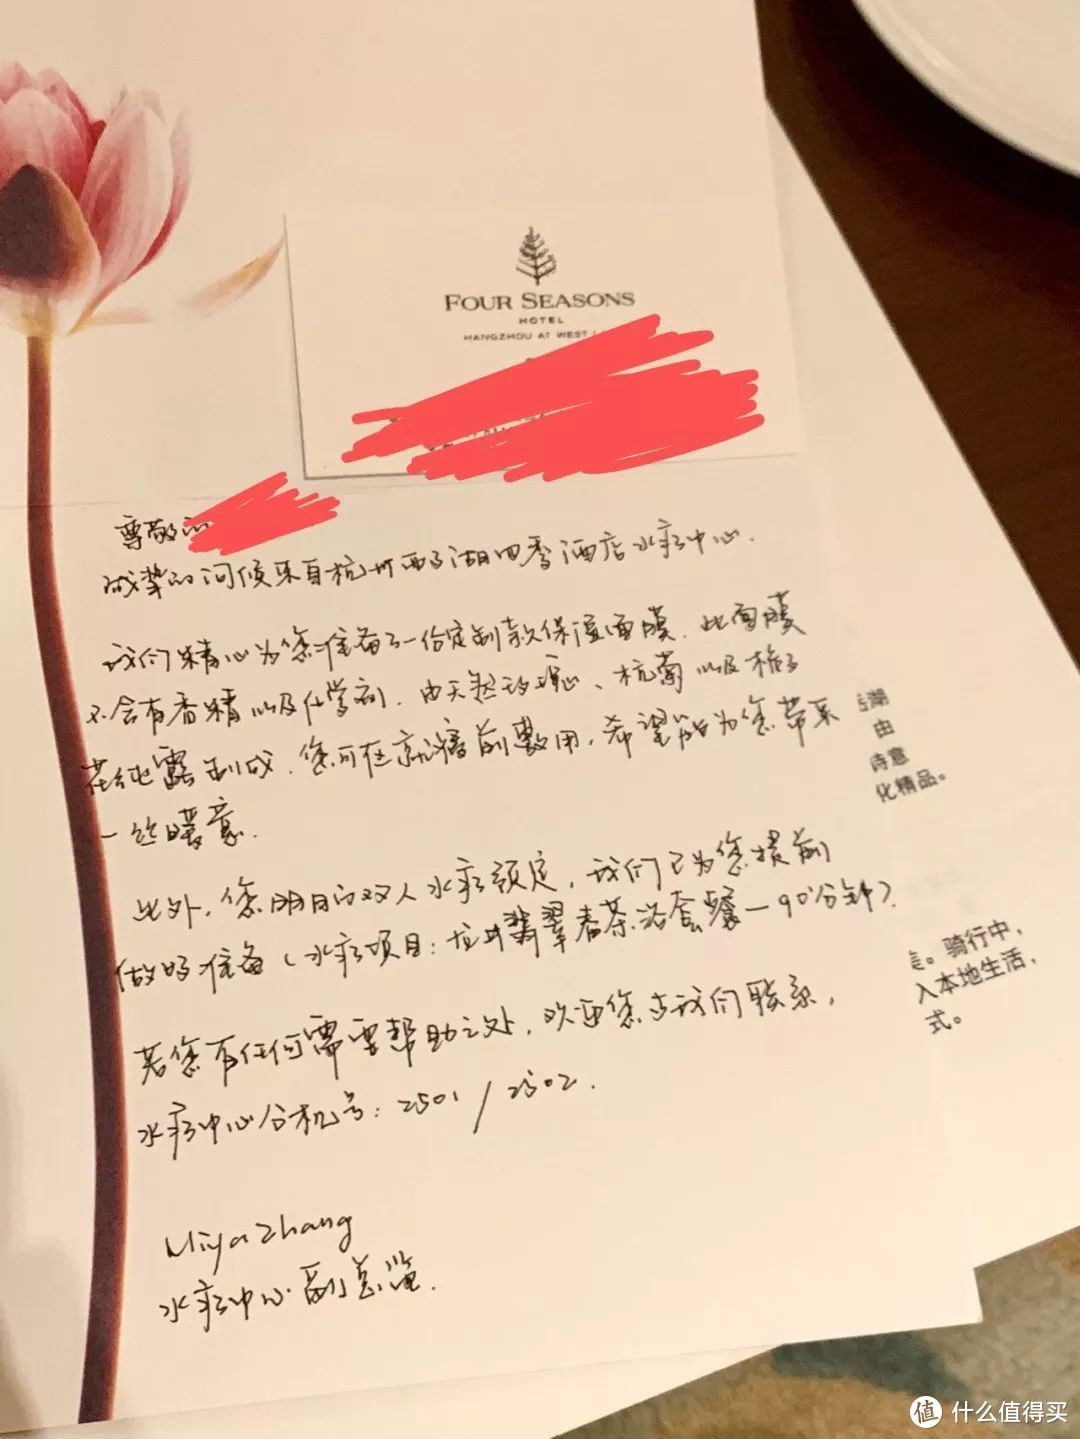 FOUR SEASONS
HOTEL
HANGZHOU AT WEST
尊敬的
诚挚的问候来自杭州西子湖四季酒店水疗中心.
我们精心为您准备了一份定制款保湿面膜. 此面膜
不含有香精以及化学剂. 由天然玫瑰、杭菊以及栀子
花纯露制成. 您可在就寝前敷用, 希望能为您带来
一丝暖意.
此外, 您明日的双人水疗预定, 我们已为您提前
做好准备(水疗项目: 龙井翡翠春茶浴套餐—90分钟)
若您有任何需要帮助之处, 欢迎您与我们联系,
水疗中心分机号: 2501 / 2502.
Miya Zhang
水疗中心副总监.
湖
由
诗意
化精品。
。骑行中,
入本地生活,
式。
值 什么值得买